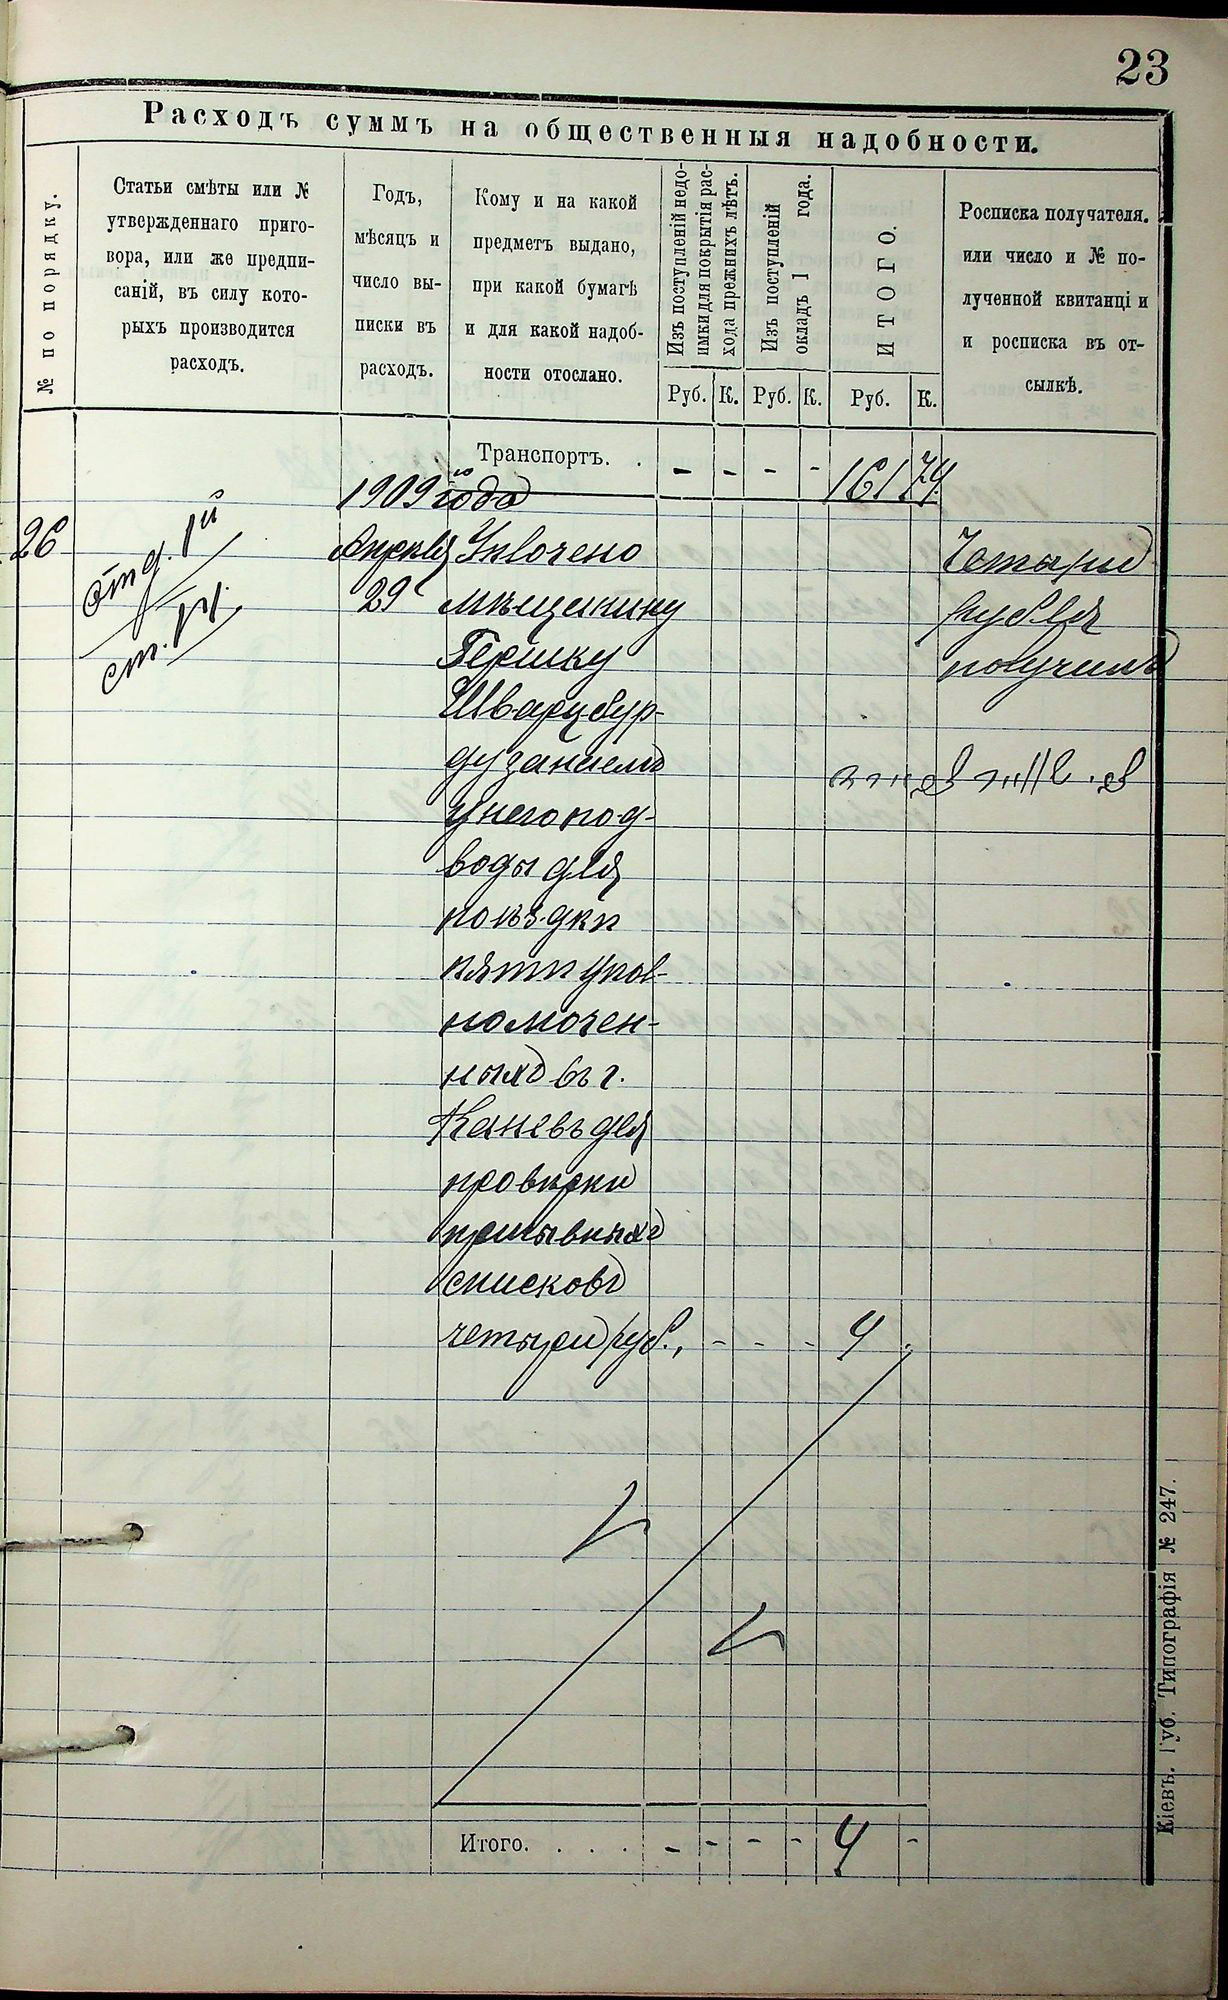 23
Расходъ суммъ на общественныя надобности.
№ по порядку.
Статьи смѣты или №
утвержденнаго приго-
вора, или же предпи-
саній, въ силу кото-
рыхъ производится
расходъ.
Годъ,
мѣсяцъ и
число вы-
писки въ
расходъ.
Кому и на какой
предметъ выдано,
при какой бумагѣ
и для какой надоб-
ности отослано.
Изъ поступленій недо-
имки для покрытія рас-
хода прежнихъ лѣтъ.
Изъ поступленій
окладъ 1 года.
ИТОГО.
Росписка получателя.
или число и № по-
лученной квитанціи и
и росписка въ от-
сылкѣ.
Руб. К. Руб. К. Руб. К.
Транспортъ. . - - - - 161 74
1909 го года
26 отд. 1й Апрѣля Уплочено Четыри
ст. 29 мѣщанину рубля
Гершку получилъ
Шварцбур-
ду за наемъ
у него под-
воды для
поѣздки
пяти упол-
номочен-
ныхъ въ г.
Каневъ для
провѣрки
призывныхъ
списковъ
четыри руб., - - - 4 -
Итого. . . . - - - - 4 -
Кіевъ. Губ. Типографія № 247.